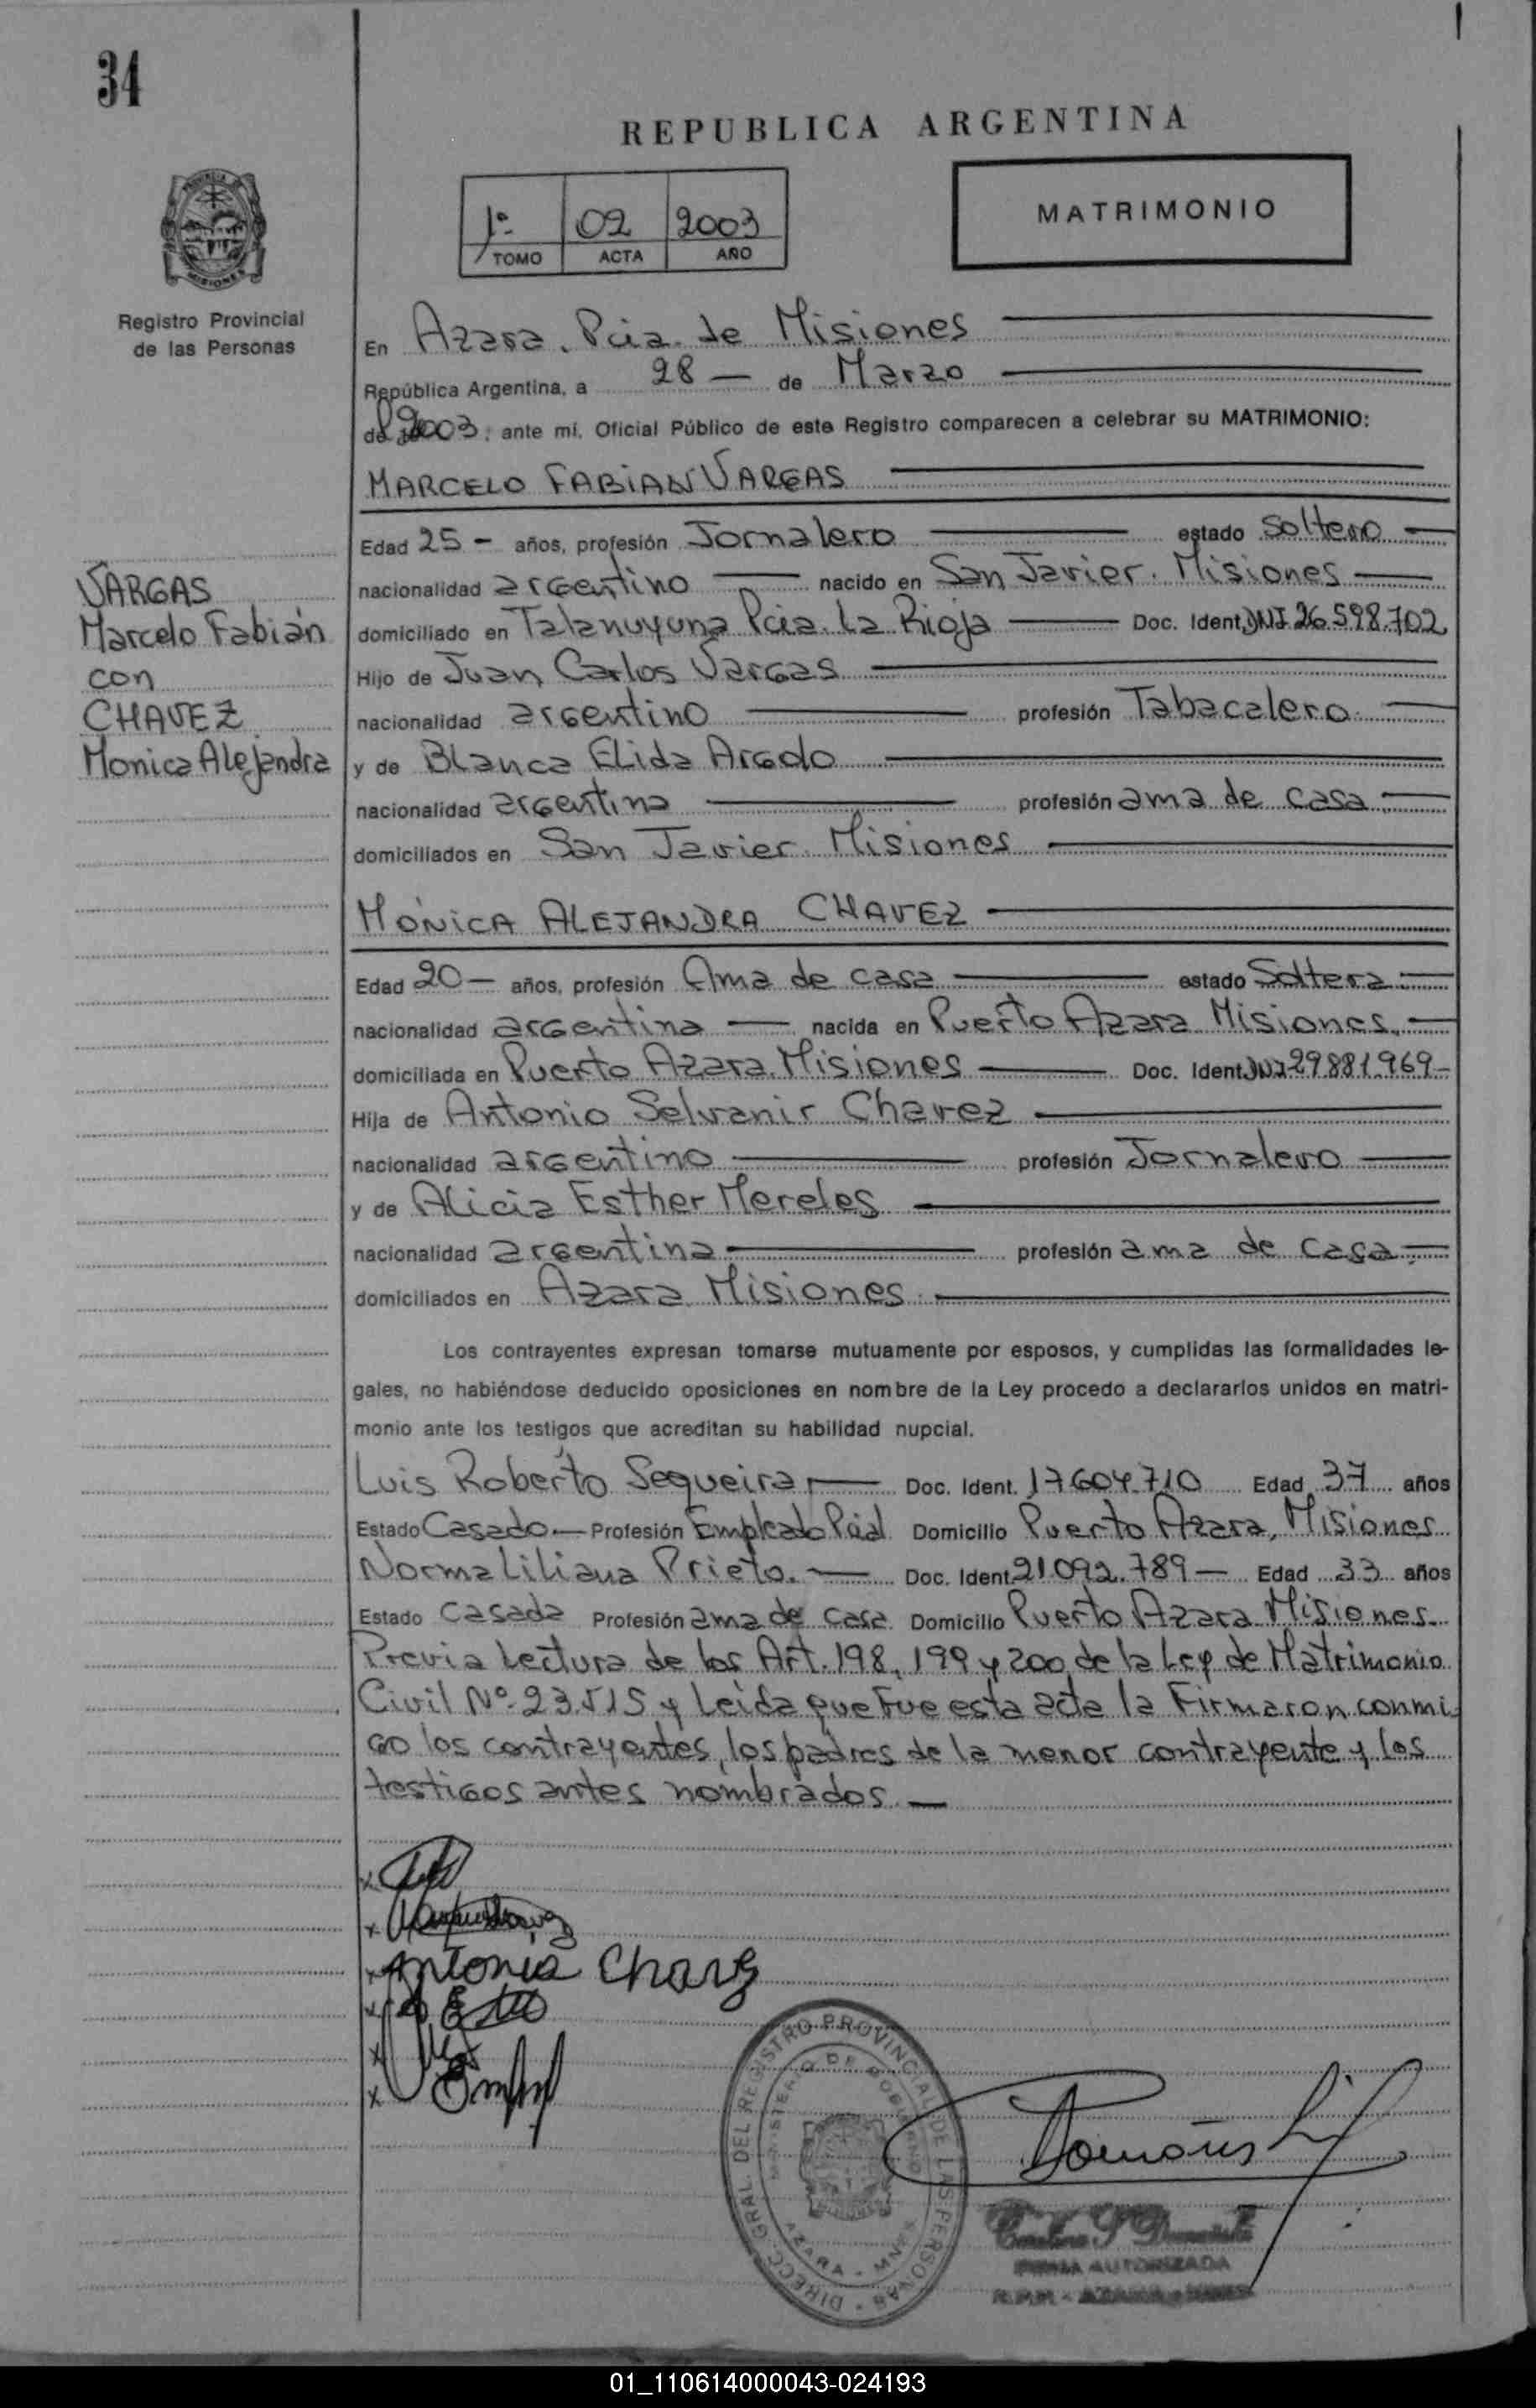 34
REPUBLICA ARGENTINA
1º 02 2003
TOMO ACTA AÑO
MATRIMONIO
PROVINCIA DE
MISIONES
Registro Provincial
de las Personas
En Azara. Pcia. de Misiones
República Argentina, a 28 — de Marzo
del 2003; ante mí, Oficial Público de este Registro comparecen a celebrar su MATRIMONIO:
MARCELO FABIAN VARGAS
Edad 25 - años, profesión Jornalero estado Soltero
nacionalidad argentino nacido en San Javier. Misiones
domiciliado en Talanuyuna Pcia. La Rioja Doc. Ident. DNI 26.598.702
Hijo de Juan Carlos Vargas
nacionalidad argentino profesión Tabacalero
y de Blanca Elida Argdo
nacionalidad argentina profesión ama de casa
domiciliados en San Javier. Misiones
VARGAS
Marcelo Fabián
con
CHAVEZ
Monica Alejandra
MÓNICA ALEJANDRA CHAVEZ
Edad 20 — años, profesión Ama de casa estado Soltera
nacionalidad argentina — nacida en Puerto Azara Misiones.
domiciliada en Puerto Azara. Misiones Doc. Ident. DNI 29881.969
Hija de Antonio Selvanir Chavez
nacionalidad argentino profesión Jornalero
y de Alicia Esther Mereles
nacionalidad argentina profesión ama de casa
domiciliados en Azara. Misiones
Los contrayentes expresan tomarse mutuamente por esposos, y cumplidas las formalidades le-
gales, no habiéndose deducido oposiciones en nombre de la Ley procedo a declararlos unidos en matri-
monio ante los testigos que acreditan su habilidad nupcial.
Luis Roberto Sequeira Doc. Ident. 17604.710 Edad 37 años
Estado Casado. — Profesión Empleado Pcial Domicilio Puerto Azara, Misiones
Norma Liliana Prieto. — Doc. Ident. 21.092.789 — Edad 33 años
Estado Casada Profesión ama de casa Domicilio Puerto Azara Misiones
Previa Lectura de los Art. 198, 199 y 200 de la Ley de Matrimonio
Civil Nº 23.515 y Leída que Fue esta acta la Firmaron conmi-
go los contrayentes, los padres de la menor contrayente y los
testigos antes nombrados. —
Antonio Chavez
DIRECC. GRAL. DEL REGISTRO PROVINCIAL DE LAS PERSONAS
MINISTERIO DE GOBIERNO
AZARA - MNES
FIRMA AUTORIZADA
01_110614000043-024193